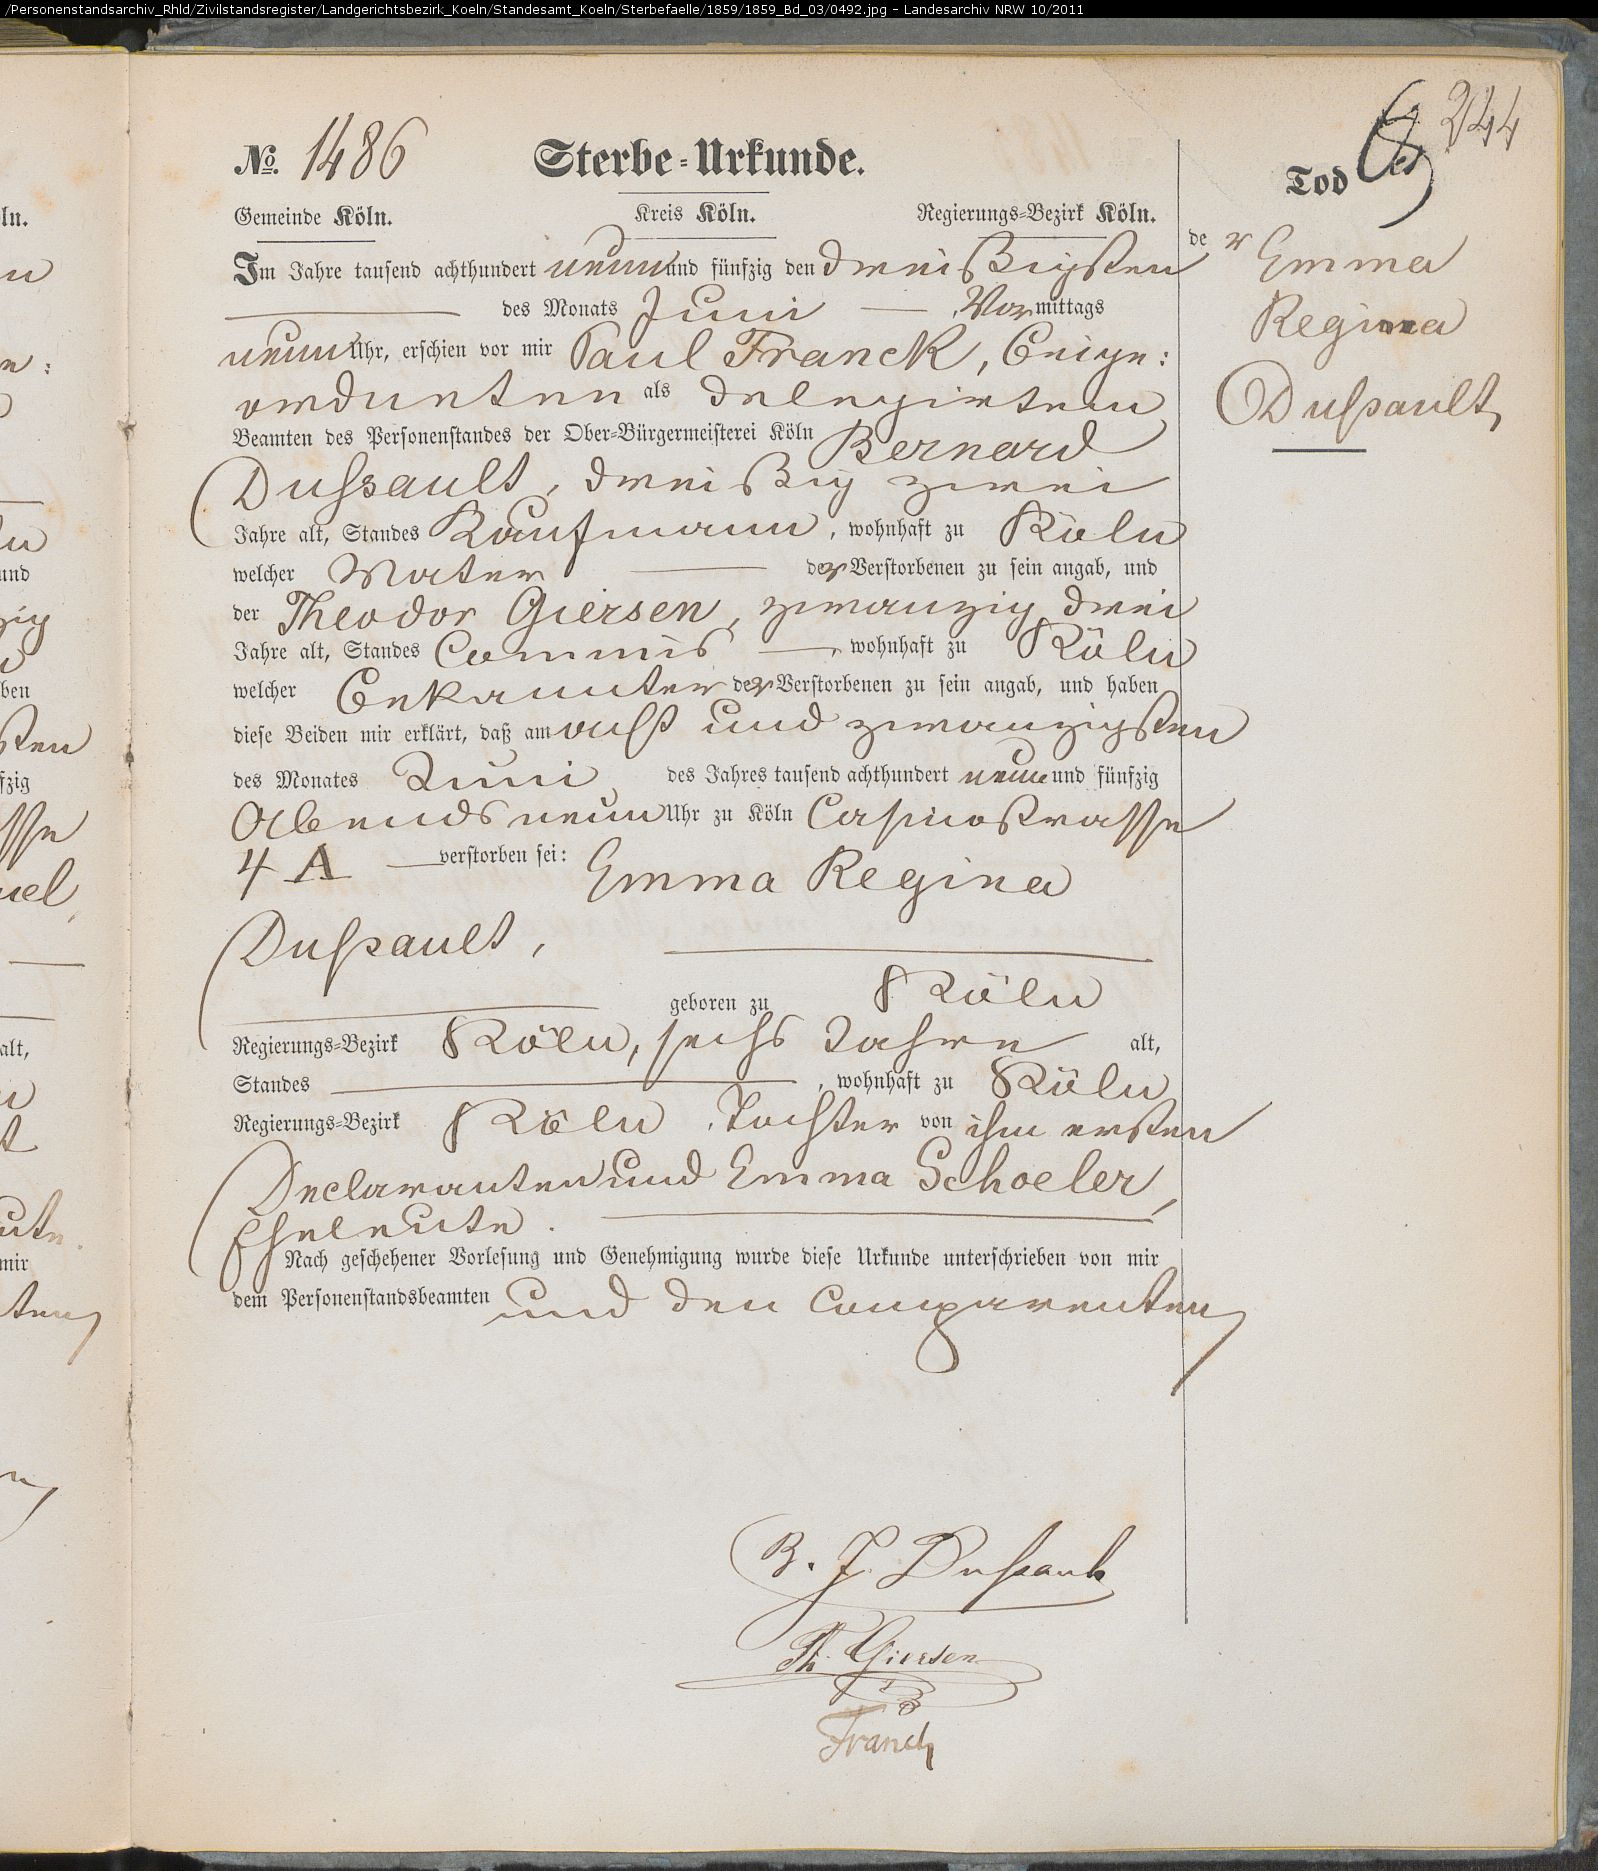 /Personenstandsarchiv_Rhld/Zivilstandsregister/Landgerichtsbezirk_Koeln/Standesamt_Koeln/Sterbefaelle/1859/1859_Bd_03/0492.jpg - Landesarchiv NRW 10/2011
244
No. 1486 Sterbe-Urkunde.
Gemeinde Köln. Kreis Köln. Regierungs-Bezirk Köln.
Im Jahre tausend achthundert neun und fünfzig den dreißigsten
des Monats Juni, Vormittags
neun Uhr, erschien vor mir Paul Franck, Beige:
ordneten als delegirtem
Beamten des Personenstandes der Ober-Bürgermeisterei Köln Bernard
Dußault, dreißig zwei
Jahre alt, Standes Kaufmann, wohnhaft zu Köln
welcher Vater der Verstorbenen zu sein angab, und
der Theodor Giersen, zwanzig drei
Jahre alt, Standes Commis, wohnhaft zu Köln
welcher Bekannter der Verstorbenen zu sein angab, und haben
diese Beiden mir erklärt, daß am acht und zwanzigsten
des Monates Juni des Jahres tausend achthundert neun und fünfzig
Abends neun Uhr zu Köln Casinostrasse
4 A verstorben sei: Emma Regina
Dußault,
geboren zu Köln
Regierungs-Bezirk Köln, sechs Jahre alt,
Standes , wohnhaft zu Köln
Regierungs-Bezirk Köln, Tochter von ihm ersten
Declaranten und Emma Schoeler,
Eheleute.
Nach geschehener Vorlesung und Genehmigung wurde diese Urkunde unterschrieben von mir
dem Personenstandsbeamten und den Comparenten
B. J. Dußault
Th. Giersen
Franck
Tod
der Emma
Regina
Dußault
ln.
und
ben
fzig
alt,
mir